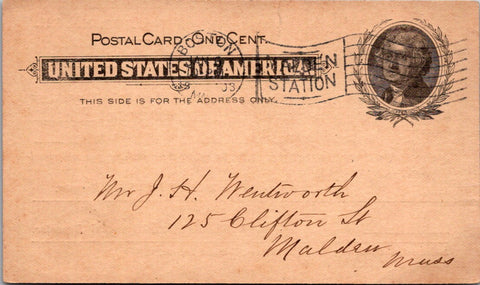 POSTAL CARD - ONE CENT.
BOSTON
UNITED STATES OF AMERICA
STATION
THIS SIDE IS FOR THE ADDRESS ONLY.
Mr J. H. Wentworth
125 Clifton St
Malden
Mass